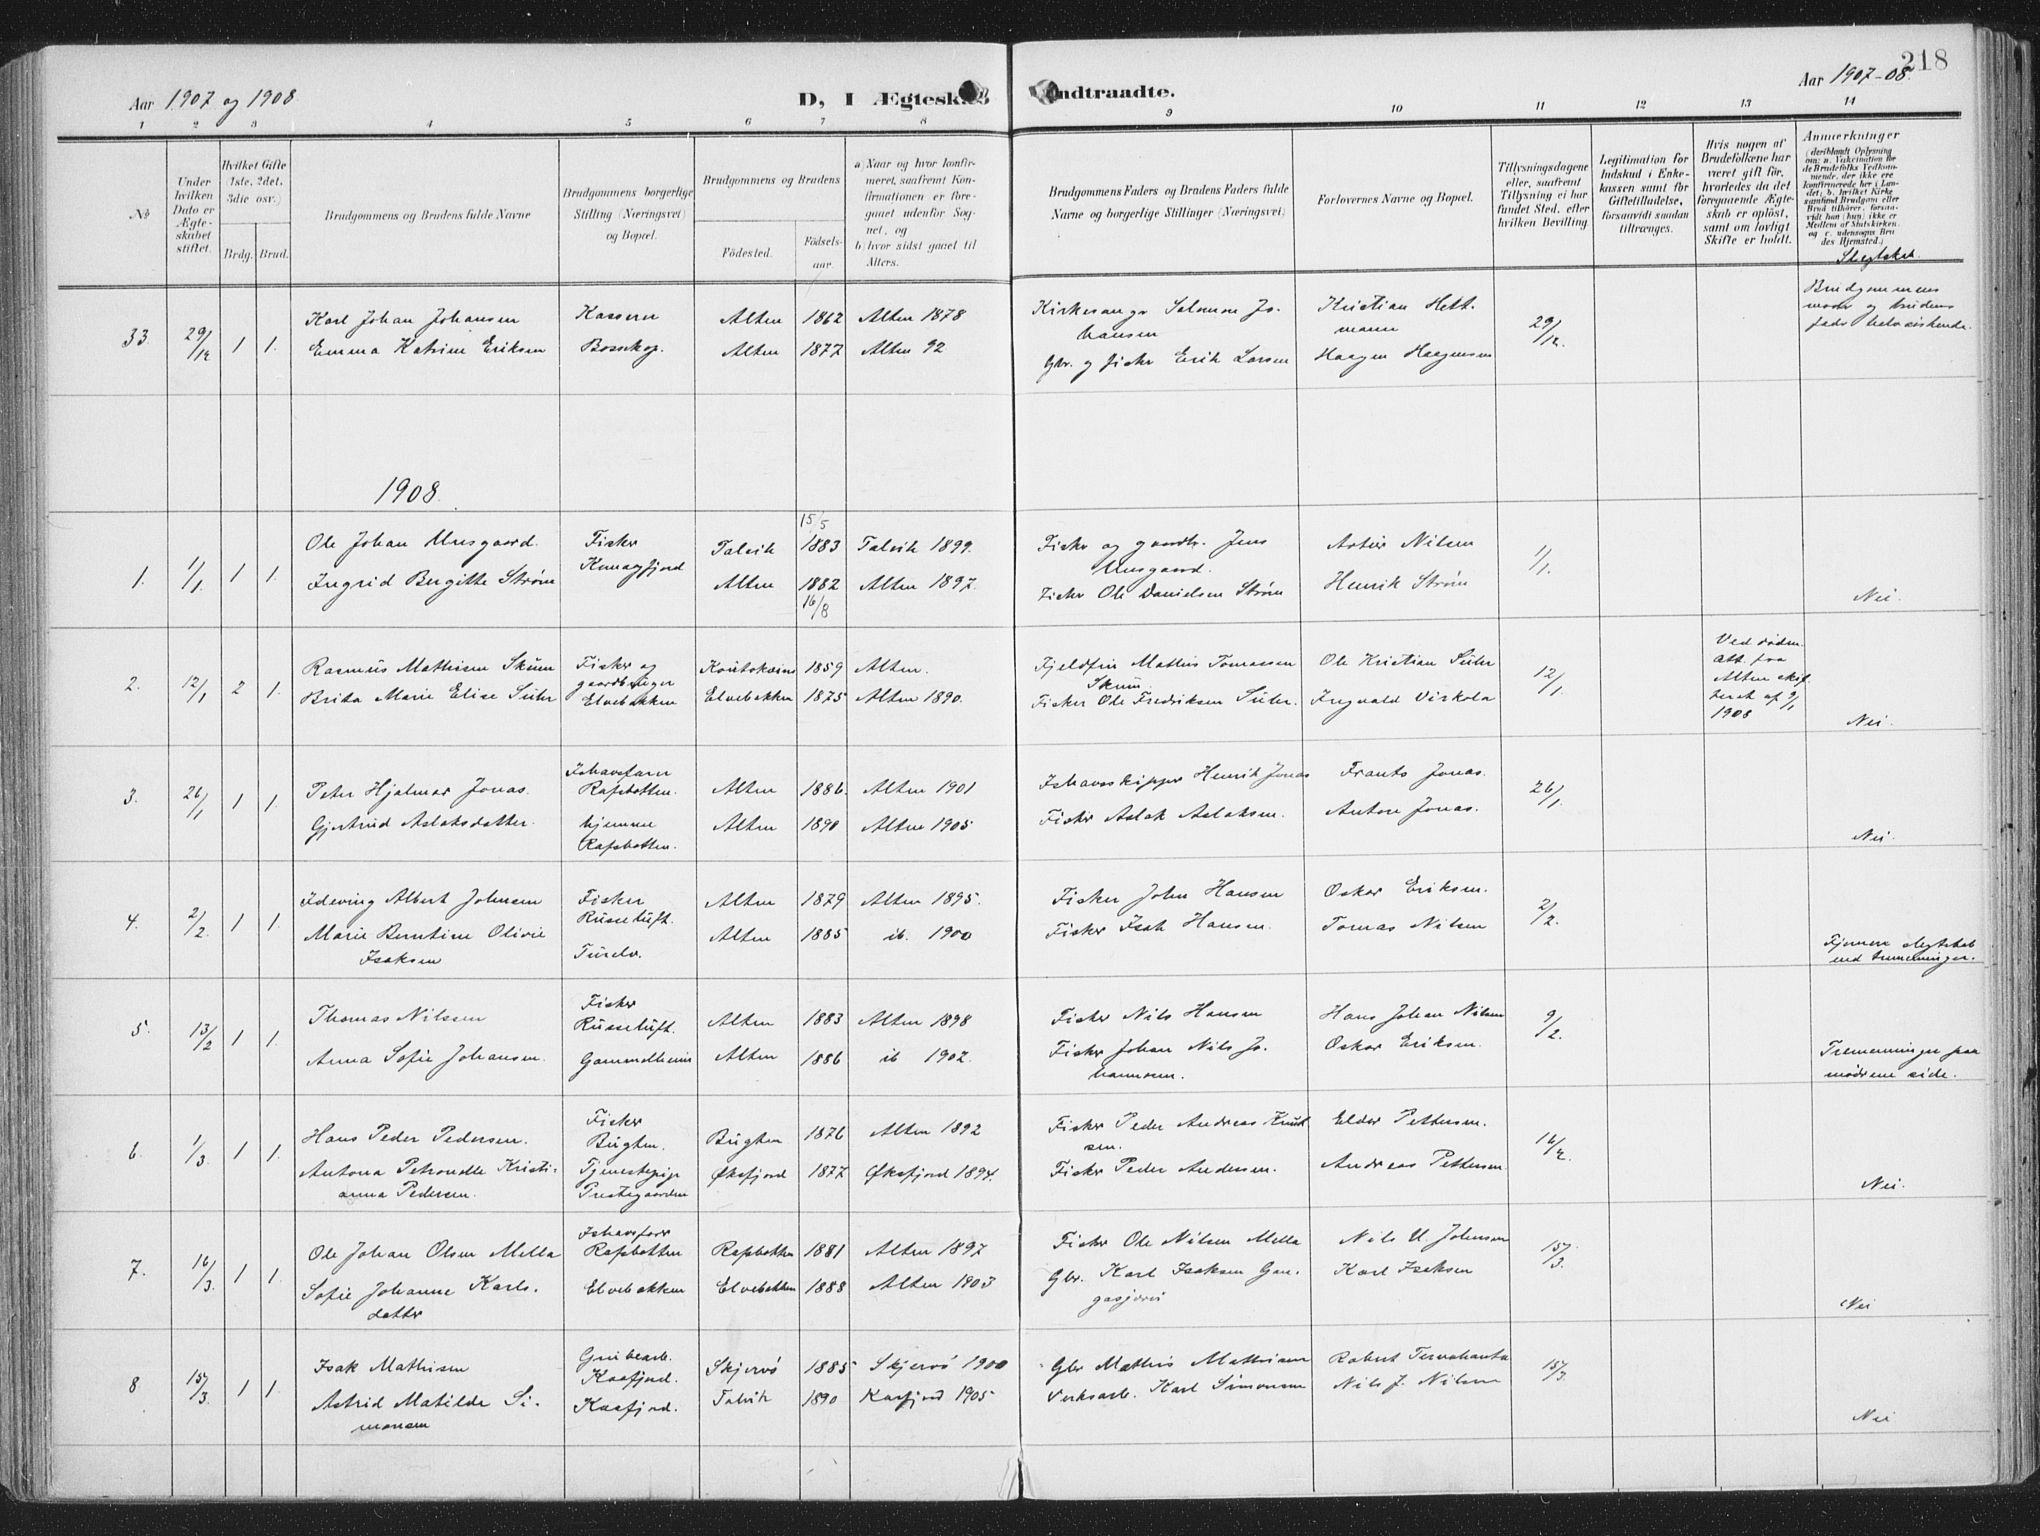 218
Aar 1907 og 1908
D, I Ægteskab Indtraadte.
Aar 1907-08.
1 2 3 4 5 6 7 8 9 10 11 12 13 14
No
Under hvilken Dato er Ægteskabet stiftet.
Hvilket Gifte (1ste, 2det, 3die osv.)
Brdg. Brud.
Brudgommens og Brudens fulde Navne
Brudgommens borgerlige Stilling (Næringsvei) og Bopæl.
Brudgommens og Brudens
Födested.
Födselsaar.
a) Naar og hvor konfirmeret, saafremt Konfirmationen er foregaaet udenfor Sognet, og
b) hvor sidst gaaet til Alters.
Brudgommens Faders og Brudens Faders fulde Navne og borgerlige Stillinger (Næringsvei)
Forlovernes Navne og Bopæl.
Tillysningsdagene eller, saafremt Tillysning ei har fundet Sted, efter hvilken Bevilling
Legitimation for Indskud i Enkekassen samt for Giftetilladelse, forsaavidt saadan tiltrænges.
Hvis nogen af Brudefolkene har været gift før, hvorledes da det foregaaende Ægteskab er oplöst, samt om lovligt Skifte er holdt.
Anmærkninger
(deriblandt Oplysning om: a. Vakcination for de Brudefolks Vedkommende, der ikke ere konfirmerede her i Landet; b. hvilket Kirkesamfund Brudgom eller Brud tilhører, forsaavidt han (hun) ikke er Medlem af Statskirken, og c. udensogns Brudes Hjemsted.)
Slegtskab
33 29/12 1 1. Karl Johan Johansen
Emma Katrine Eriksen
Bossekop.
Alten 1862 Alten 1878
Alten 1877 Alten 92
Kirkesanger Salomon Johansen
Gbr. og fisker Erik Larsen
Kristian Hettmann
Haagen Haagensen
29/12.
Brudgommens mor og brudens far halvsiskende.
1908.
1. 1/1. 1 1. Ole Johan
Ingrid Bergitte Strøm
Fisker
Talvik 15/5 1883 Talvik 1899.
Alten 1882 16/8 Alten 1897.
Fisker og gaardb. Jens
Fisker Ole Danielsen Strøm
Nilsen
Henrik Strøm
1/1.
Nei.
2. 12/1 2 1. Rasmus Mathisen Skum
Brita Marie Elise Suhr
Fisker og gaardbruger
Elvebakken
Koutokeino 1859 Alten.
Elvebakken 1875 Alten 1890.
Fjeldfin Mathis Tomassen Skum.
Fisker Ole Fredriksen Suhr.
Ole Kristian Suhr
Ingvald Virkola
12/1.
Ved døden. Att. fra Alten skifteret af 9/1 1908
Nei.
3. 26/1 1 1. Peter Hjalmar Jonas.
Gjertrud Aslaksdatter.
Ishavsfarer
Rafsbotten.
hjemme
Rafsbotten.
Alten 1886. Alten 1901
Alten 1890 Alten 1905
Ishavsskipper Henrik Jonas
Fisker Aslak Aslaksen.
Frants Jonas.
Anton Jonas.
26/1.
Nei.
4. 2/2. 1 1. Albert Johnsen
Marie Berntine Olivie Isaksen
Fisker
Russeluft.
Alten 1879 Alten 1895.
Alten 1885 ib. 1900
Fisker John Hansen
Fisker Isak Hansen.
Oskar Eriksen.
Tomas Nilsen
2/2.
Fjernere slegtskab end tremenninger.
5. 13/2 1 1. Thomas Nilssen
Anna Sofie Johansen.
Fisker
Russeluft.
Gammelheim
Alten 1883 Alten 1898
Alten 1886 ib 1902.
Fisker Nils Hansen
Fisker Johan Nils Johannesen.
Hans Johan Nilsen
Oskar Eriksen.
9/2.
Tremenninger paa mødrene side.
6. 1/3 1 1. Hans Peder Pedersen.
Antona Petronelle Kristianna Pedersen.
Fisker
Bugten.
Tjenestepige
Prestegaarden
Bugten 1876 Alten 1892
Øksfjord 1877 Øksfjord 1894.
Fisker Peder Andreas Knutsen.
Fisker Peder Andersen.
Eldor Pettersen.
Andreas Pettersen
16/2.
Nei.
7. 16/3. 1 1. Ole Johan Olsen Mella
Sofie Johanne Karlsdatter
Ishavsfarer
Rafsbotten
Elvebakken
Rafsbotten 1881 Alten 1897
Elvebakken 1888 Alten 1903
Fisker Ole Nilsen Mella
Gbr. Karl Isaksen
Nils U Johnsen
Karl Isaksen
15/3.
Nei
8 15/3. 1 1. Isak Mathisen
Astrid Matilde Simonsen
Grubearb.
Kaafjord.
Kaafjord.
Skjervö 1885 Skjervö 1900
Talvik 1890 Kaafjord 1905
Gbr Mathis Mathisen
Verksarb. Karl Simonsen
Robert
Nils J. Nilsen
15/3.
Nei